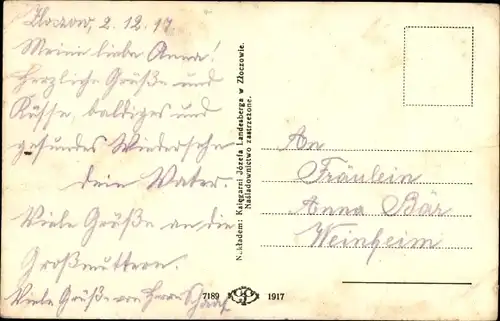 Złoczow, 2.12.17
Meine liebe Anna!
Herzliche Grüße und
Küsse, baldiges und
gesundes Wiedersehn
Dein Vater.
Viele Grüße an die
Großmuttern.
Viele Grüße von Herrn Scharf
Nakładem: Księgarni Józefa Landesberga w Złoczowie.
Naśladownictwo zastrzeżone.
7189 1917
An
Fräulein
Anna Bär
Weinheim